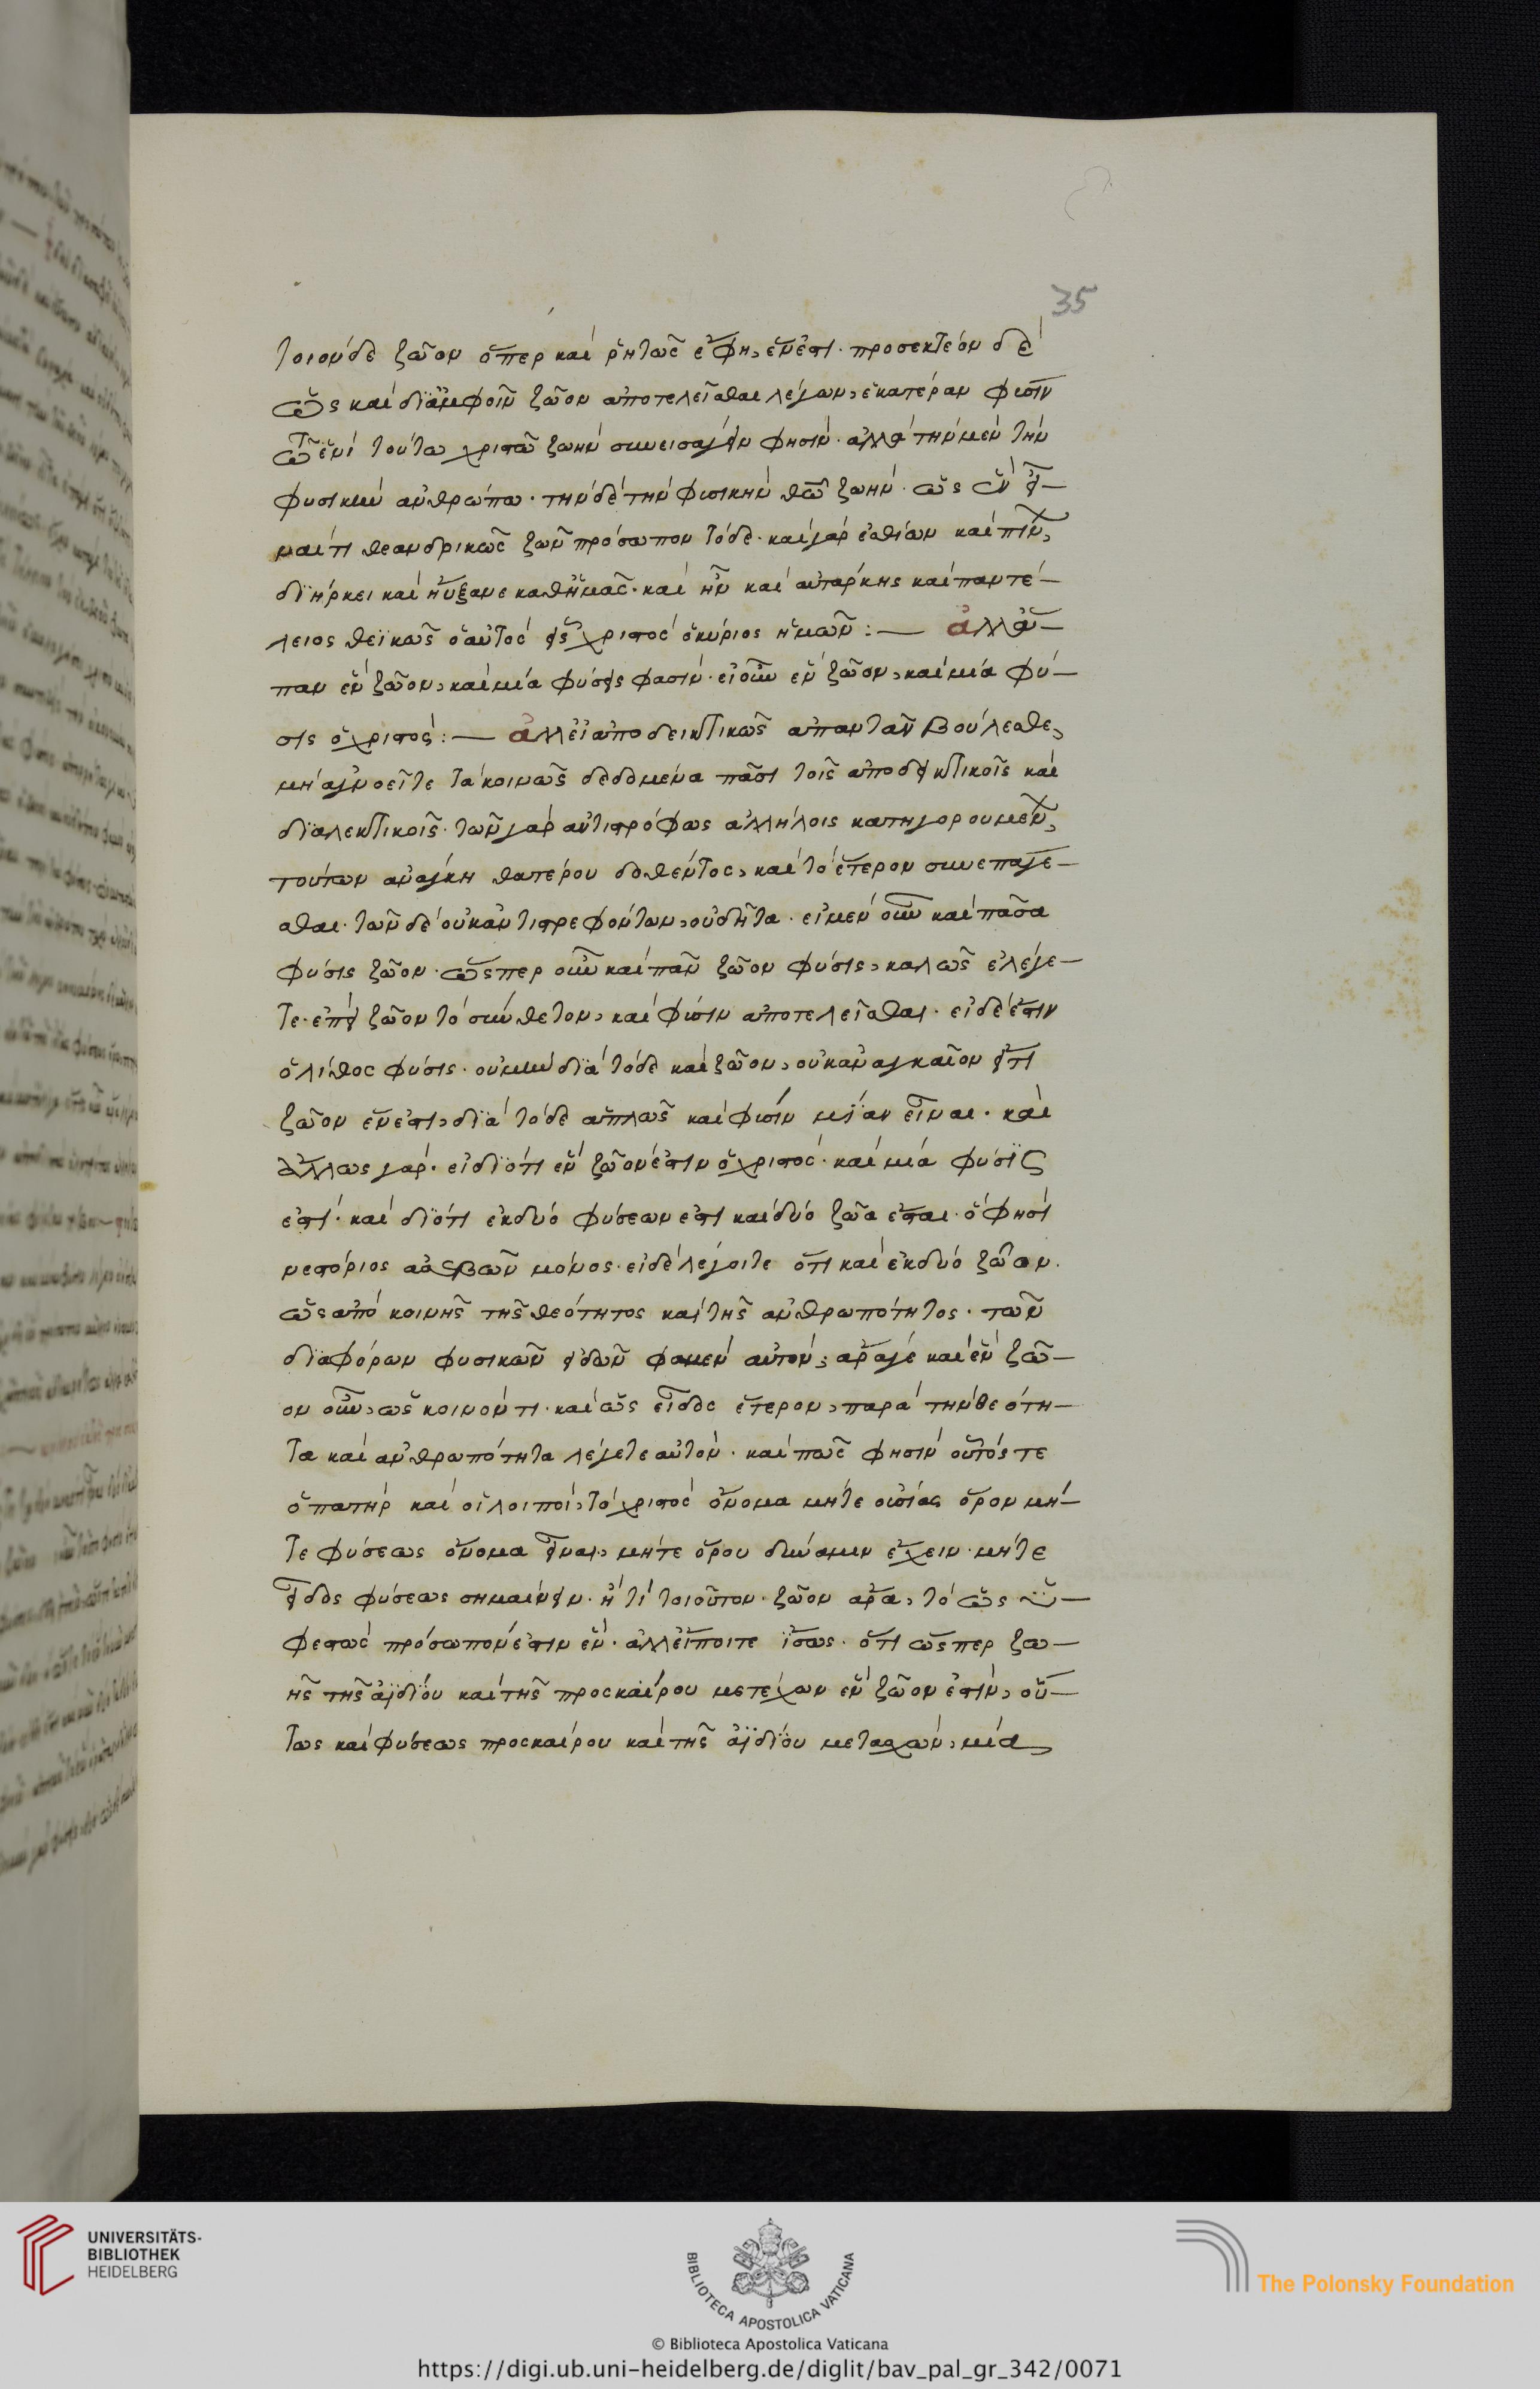 35
τοιόνδε ζῶον ὅπερ καὶ ῥητῶς ἔφη, ἕν ἐστι. προσεκτέον δὲ
ὡς καὶ δι ἀμφοῖν ζῶον ἀποτελεῖσθαι λέγων, ἑκατέραν φύσιν
τῶ ἑνὶ τούτω χριστῶ ζωὴν συνεισάγειν φησίν. ἀλλὰ τὴν μὲν τὴν
φυσικὴν ἀνθρώπω. τὴν δὲ τὴν φυσικὴν θεῶ ζωήν. ὡς
θεανδρικῶς ζῶν πρόσωπον τόδε. καὶ γὰρ ἐσθίων καὶ πίνων,
διήρκει καὶ ηὔξανε καθ ἡμᾶς. καὶ ἦν καὶ αὐτάρκης καὶ παντέ-
λειος θεϊκῶς ὁ αὐτὸς εἷς χριστὸς ὁ κύριος ἡμῶν :— ἀλλ εἴ-
παν ἓν ζῶον, καὶ μία φύσις φασίν. εἰ οὖν ἓν ζῶον, καὶ μία φύ-
σις ὁ χριστός :— ἀλλ εἰ ἀποδεικτικῶς ἀπαντᾶν βούλεσθε,
μὴ ἀγνοεῖτε τὰ κοινῶς δεδομένα πᾶσι τοῖς ἀποδεικτικοῖς καὶ
διαλεκτικοῖς. τῶν γὰρ ἀντιστρόφως ἀλλήλοις κατηγορουμένων,
τούτων ἀνάγκη θατέρου δοθέντος, καὶ τὸ ἕτερον συνεπάγε-
σθαι. τῶν δὲ οὐκ ἀντιστρεφόντων, οὐδῆτα. εἰ μὲν οὖν καὶ πᾶσα
φύσις ζῶον. ὥσπερ οὖν καὶ πᾶν ζῶον φύσις, καλῶς ἐλέγε-
τε. ἐπεὶ ζῶον τὸ σύνθετον, καὶ φύσιν ἀποτελεῖσθαι. εἰ δέ ἐστιν
ὁ λίθος φύσις. οὐ μὴν διὰ τόδε καὶ ζῶον, οὐκ ἀναγκαῖον εἴ τι
ζῶον ἕν ἐστι, διὰ τόδε ἁπλῶς καὶ φύσιν μίαν εἶναι. καὶ
ἄλλως γάρ. εἰ διότι ἓν ζῶον ἐστιν ὁ χριστός. καὶ μία φύσις
ἐστί. καὶ διότι ἐκ δύο φύσεων ἐστι καὶ δύο ζῶα ἔσται. ὅ φησι
νεστόριος ἀσεβῶν μόνος. εἰ δὲ λέγοιτε ὅτι καὶ ἐκ δύο ζώων.
ὡς ἀπὸ κοινῆς τῆς θεότητος καὶ τῆς ἀνθρωπότητος. τῶν
διαφόρων φυσικῶν εἰδῶν φαμὲν αὐτόν; ἆρά γε καὶ ἓν ζῶ-
ον οὖν, ὡς κοινόν τι. καὶ ὡς εἶδος ἕτερον, παρὰ τὴν θεότη-
τα καὶ ἀνθρωπότητα λέγετε αὐτόν. καὶ πῶς φησὶν οὗτός τε
ὁ πατὴρ καὶ οἱ λοιποί, τὸ χριστὸς ὄνομα μήτε οὐσίας ὅρον μή-
τε φύσεως ὄνομα εἶναι, μήτε ὅρου δύναμιν ἔχειν. μήτε
εἶδος φύσεως σημαίνειν. ἤ τι τοιοῦτον. ζῶον ἄρα, τὸ ὡς ὑ-
φεστὼς πρόσωπον ἐστιν ἕν. ἀλλ εἴποιτε ἴσως. ὅτι ὥσπερ ζω-
ῆς τῆς ἀϊδίου καὶ τῆς προσκαίρου μετέχων ἓν ζῶον ἐστίν, οὕ-
τως καὶ φύσεως προσκαίρου καὶ τῆς ἀϊδίου μετασχών, μία
UNIVERSITÄTS-
BIBLIOTHEK
HEIDELBERG
BIBLIOTECA APOSTOLICA VATICANA
The Polonsky Foundation
© Biblioteca Apostolica Vaticana
https://digi.ub.uni-heidelberg.de/diglit/bav_pal_gr_342/0071